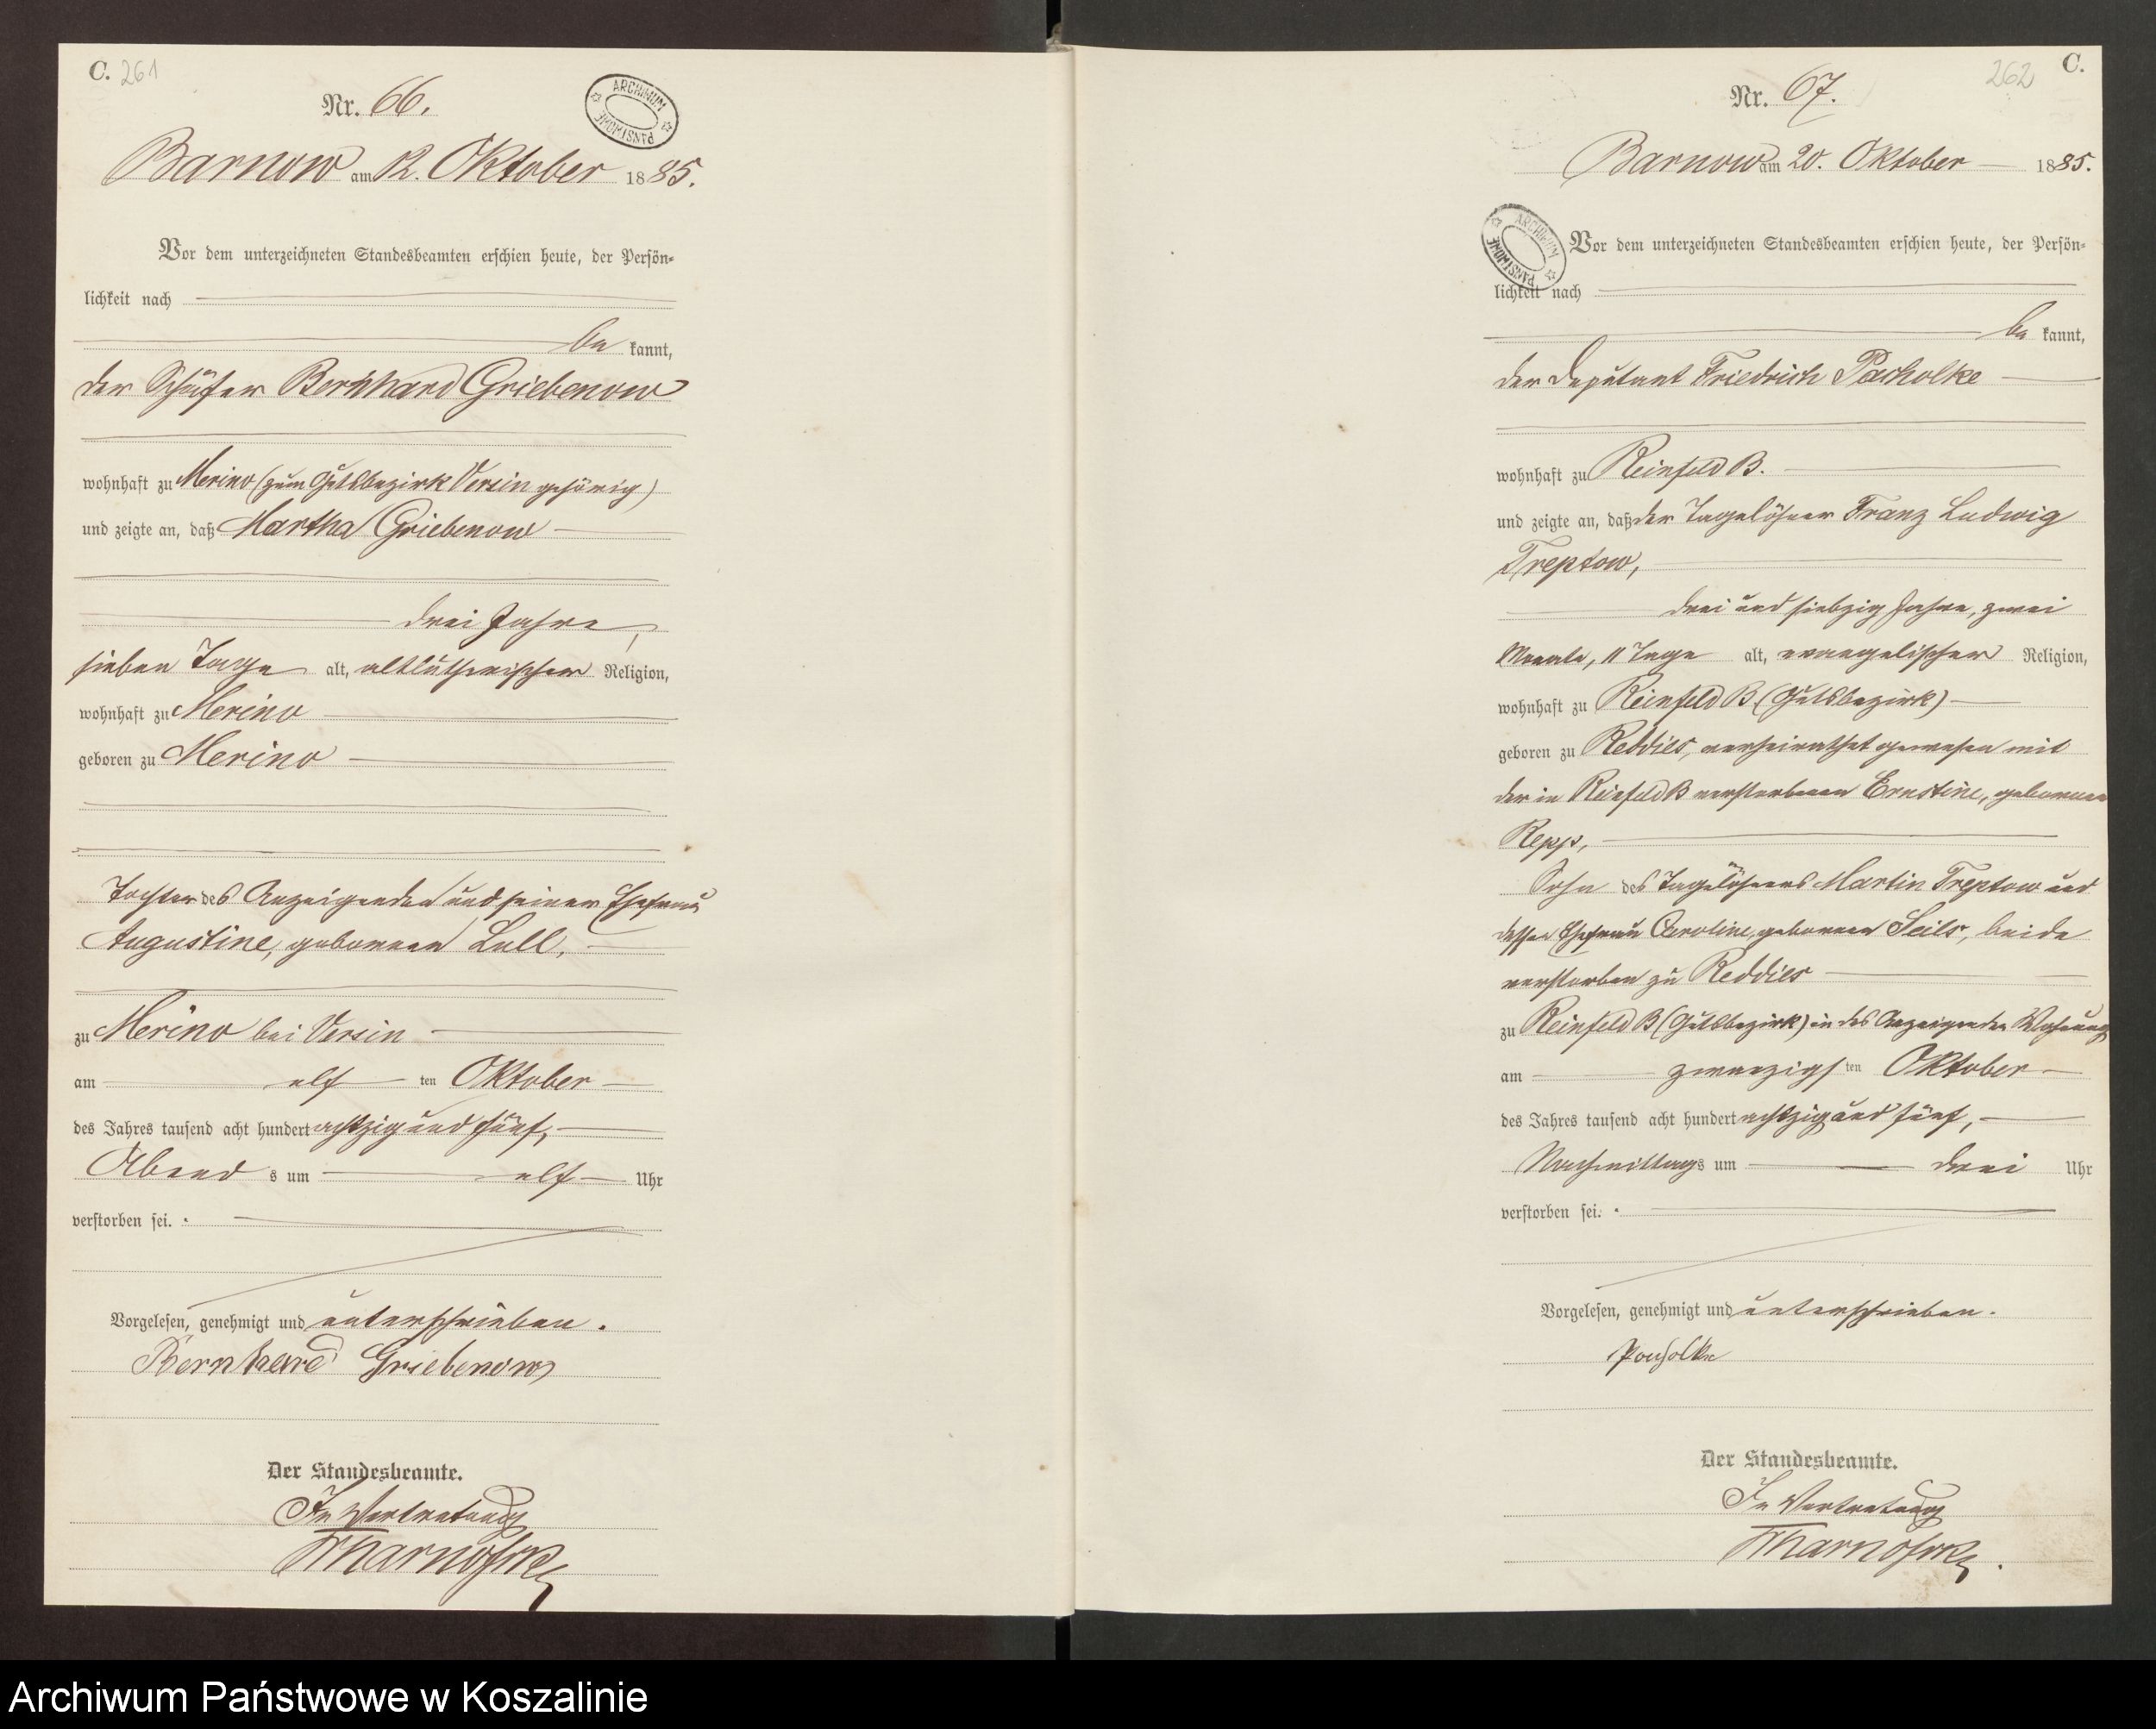 C. 261
Nr. 66.
ARCHIWUM PAŃSTWOWE
Barnow am 12. Oktober 1885.
Vor dem unterzeichneten Standesbeamten erschien heute, der Persön-
lichkeit nach
be kannt,
der Schäfer Bernhard Griebenow
wohnhaft zu Merino (zum Gutsbezirk Versin gehörig)
und zeigte an, daß Martha Griebenow
drei Jahre,
sieben Tage alt, altlutherischer Religion,
wohnhaft zu Merino
geboren zu Merino
Tochter des Anzeigenden und seiner Ehefrau
Augustine, geborenen Lull,
zu Merino bei Versin
am elf ten Oktober
des Jahres tausend acht hundert achtzig und fünf,
Abend s um elf Uhr
verstorben sei.
Vorgelesen, genehmigt und unterschrieben.
Bernhard Griebenow
Der Standesbeamte.
In Vertretung
262 C.
Nr. 67.
Barnow am 20. Oktober 1885.
ARCHIWUM PAŃSTWOWE
Vor dem unterzeichneten Standesbeamten erschien heute, der Persön-
lichkeit nach
be kannt,
der Deputant Friedrich Pacholke
wohnhaft zu Reinfeld B.
und zeigte an, daß der Tagelöhner Franz Ludwig
Treptow,
drei und siebzig Jahre, zwei
Monate, 11 Tage alt, evangelischer Religion,
wohnhaft zu Reinfeld B (Gutsbezirk)
geboren zu Reddies, verheirathet gewesen mit
der in Reinfeld B verstorbenen Ernstine, geborenen
Repp,
Sohn des Tagelöhners Martin Treptow und
dessen Ehefrau Caroline, geborenen Seils, beide
verstorben zu Reddies
zu Reinfeld B (Gutsbezirk) in des Anzeigenden Wohnung
am zwanzigs ten Oktober
des Jahres tausend acht hundert achtzig und fünf,
Nachmittags um drei Uhr
verstorben sei.
Vorgelesen, genehmigt und unterschrieben.
Pacholke
Der Standesbeamte.
In Vertretung
Archiwum Państwowe w Koszalinie